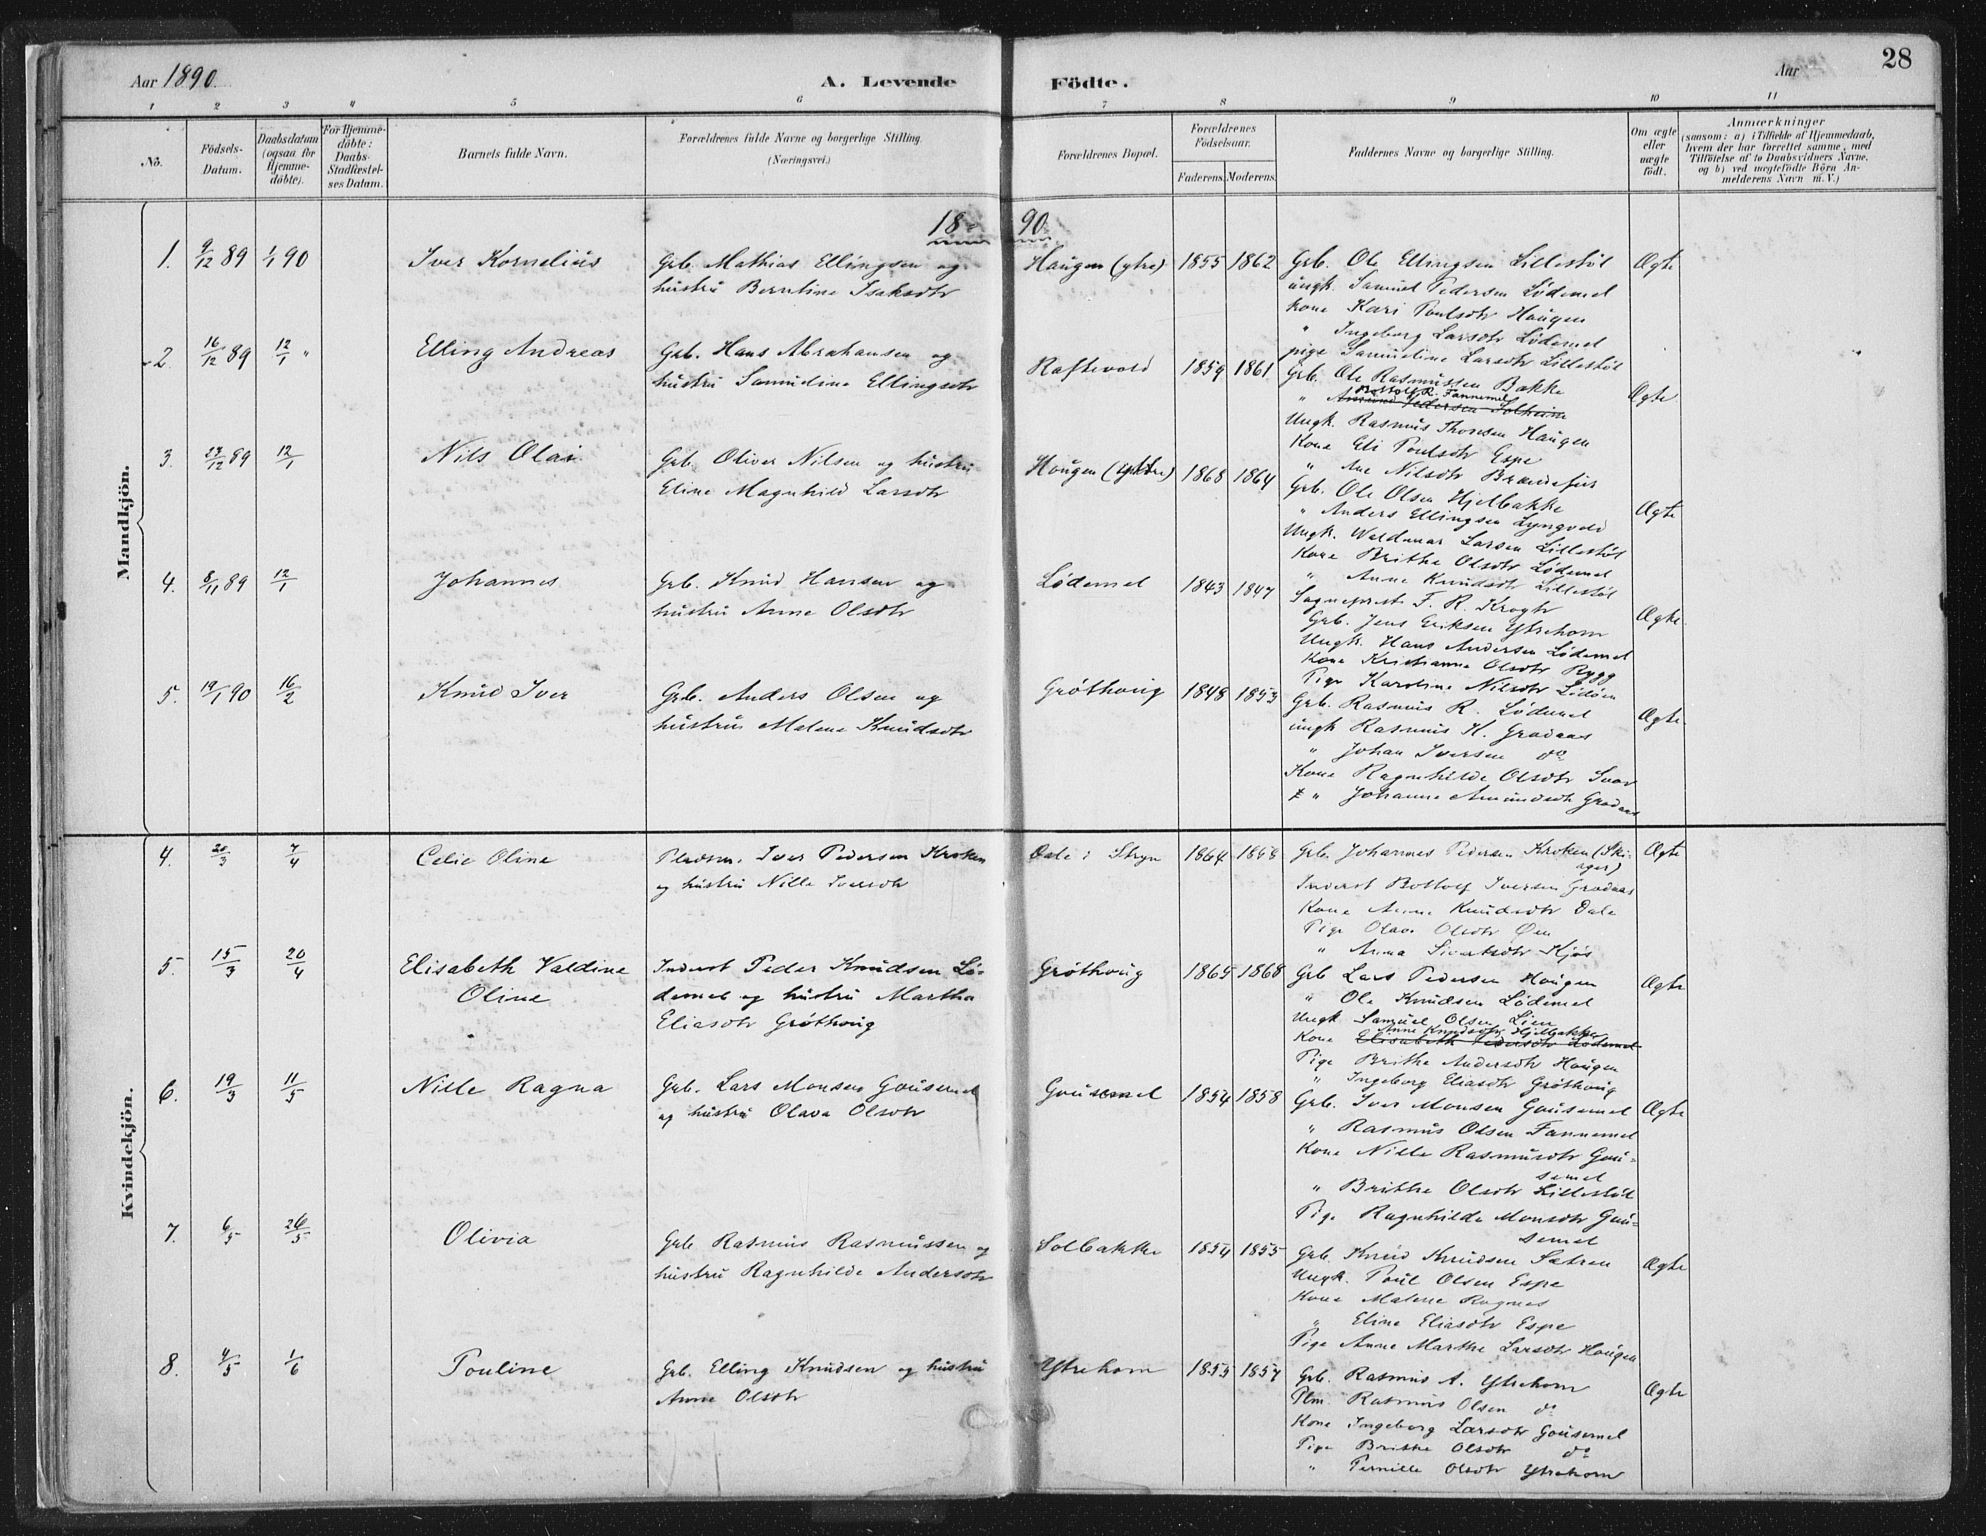 Aar 1890.
A. Levende Födte.
Aar
28
1 2 3 4 5 6 7 8 9 10 11
No.
Födsels-Datum.
Daabsdatum (ogsaa for Hjemme-döbte).
For Hjemme-döbte: Daabs-Stadfæstel-ses Datum.
Barnets fulde Navn.
Forældrenes fulde Navne og borgerlige Stilling. (Næringsvei.)
Forældrenes Bopæl.
Forældrenes Födselsaar.
Faderens. Moderens.
Faddernes Navne og borgerlige Stilling.
Om ægte eller uægte födt.
Anmærkninger
(saasom: a) i Tilfælde af Hjemmedaab, hvem der har forrettet samme, med Tilföielse af to Daabsvidners Navne, og b) ved uægtefödte Börn An-melderens Navn m. V.)
Mandkjön.
1890.
1. 9/12 89 1/1 90 Iver Kornelius
Grb. Mathias Ellingsen og
hustru Berntine Isaksdtr
Haugen (ytre) 1855 1862
Grb. Ole Ellingsen Lillestöl
ungk. Samuel Pedersen Lödemel
kone Kari Poulsdtr Haugen
" Ingeborg Larsdtr Lödemel
pige Samueline Larsdtr Lillestöl
Ægte
2. 16/12 89 12/1 " Elling Andreas
Grb. Hans Abrahamsen og
hustru Samudine Ellingsdtr
Raftevold 1859 1861
Grb. Ole Rasmussen Bakke
Bottolf R. Fannemel
" Amund Pedersen Solheim
Ungk. Rasmus Thoresen Haugen
Kone Eli Poulsdtr Espe
" Ane Nilsdtr
Ægte
3. 27/12 89 12/1 Nils Olai
Grb. Oliver Nilsen og hustru
Eline Magnhild Larsdtr
Hougen (yttre) 1868 1864
Grb. Ole Olsen Hjelbakke
" Anders Ellingsen Lyngvold
Ungk. Waldemar Larsen Lillestöl
Kone Brithe Olsdtr Lödemel
" Anne Knudsdtr Lillestöl
Ægte
4. 8/11 89 12/1 Johannes
Grb. Knud Hansen og
hustru Anne Olsdtr
Lödemel 1843 1847
Sogneprest F. R. Krogh
Grb. Jens Eriksen Ytrehorn
Ungk. Hans Andersen Lödemel
Kone Kristianne Olsdtr Rygg
Pige Karoline Nilsdtr
Ægte
5. 19/1 90 16/2 Knud Iver
Grb. Anders Olsen og
hustru Malene Knudsdtr
Gröthoug 1848 1853
Grb. Rasmus R. Lödemel
ungk Rasmus K. Grodaas
" Johan Iversen do
Kone Ragnhilde Olsdtr
" Johanne Amundsdtr Grodaas
Ægte
Kvindekjön.
4. 20/3 7/4 Celie Oline
Pladsm. Iver Pedersen Kroken
og hustru Nille Iversdtr
Dale i Stryn 1864
Grb. Johannes Pedersen Kroken (Ski-
ager)
Inderst Bottolf Iversen Grodaas
Kone Anne Knudsdtr Dale
Pige Olava Olsdtr Öen
" Anna Sivertsdtr Kjös
Ægte
5. 15/3 20/4 Elisabeth Valdine
Oline
Inderst Peder Knudsen Lö-
demel og hustru Martha
Eliasdtr Gröthoug
Gröthoug 1865 1868
Grb Lars Pedersen Hougen
" Ole Knudsen Lödemel
Ungk Samuel Olsen Lien
Anne Knudsdtr Hjelbakke
Kone Elisabeth Pedersdtr Lödemel
Pige Brithe Andersdtr Hougen
" Ingeborg Eliasdtr Gröthoug
Ægte
6. 19/3 11/5 Nille Ragna
Grb. Lars Monsen Gousemel
og hustru Olava Olsdtr
Gousemel 1854 1858
Grb. Iver Monsen Gousemel
" Rasmus Olsen Fannemel
Kone Nille Rasmusdtr Gou-
semel
" Brithe Olsdtr Lillestöl
Pige Ragnhilde Monsdtr Gou-
semel
Ægte
7. 6/5 26/5 Olivia
Grb Rasmus Rasmussen og
hustru Ragnhilde Andersdtr
Solbakke 1854 1855
Grb Knud Knudsen Sætren
Ungk. Poul Olsen Espe
Kone Malene Ragnes
" Eline Eliasdtr Espe
Pige Anne Marthe Larsdtr Hougen
Ægte
8. 4/5 1/6 Pouline
Grb. Elling Knudsen og hustru
Anne Olsdtr
Ytrehorn 1855 1857
Grb. Rasmus A. Ytrehorn
Plm. Rasmus Olsen do
Kone Ingeborg Larsdtr Gousemel
Pige Brithe Olsdtr do
" Pernille Olsdtr Ytrehorn
Ægte